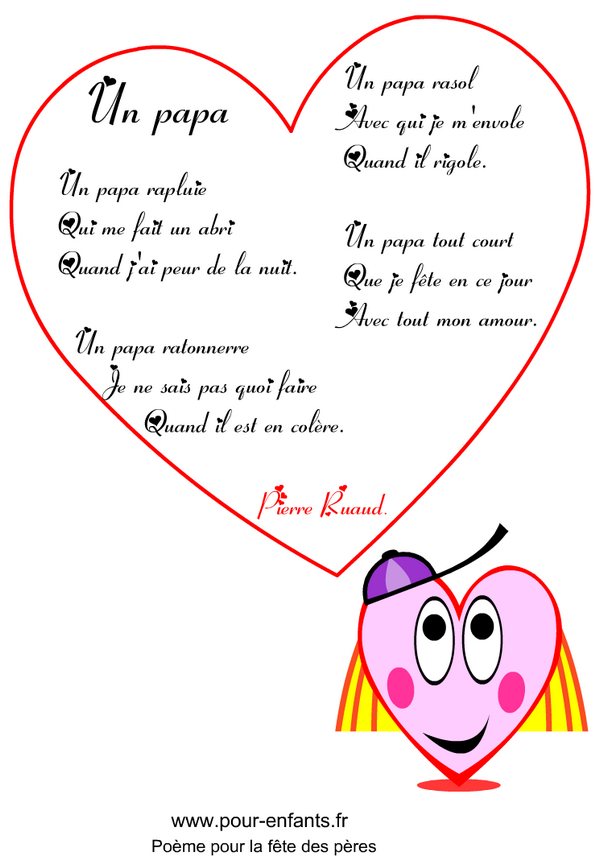 Un papa
Un papa rapluie
Qui me fait un abri
Quand j'ai peur de la nuit.
Un papa ratonnerre
Je ne sais pas quoi faire
Quand il est en colère.
Un papa rasol
Avec qui je m'envole
Quand il rigole.
Un papa tout court
Que je fête en ce jour
Avec tout mon amour.
Pierre Ruaud.
www.pour-enfants.fr
Poème pour la fête des pères